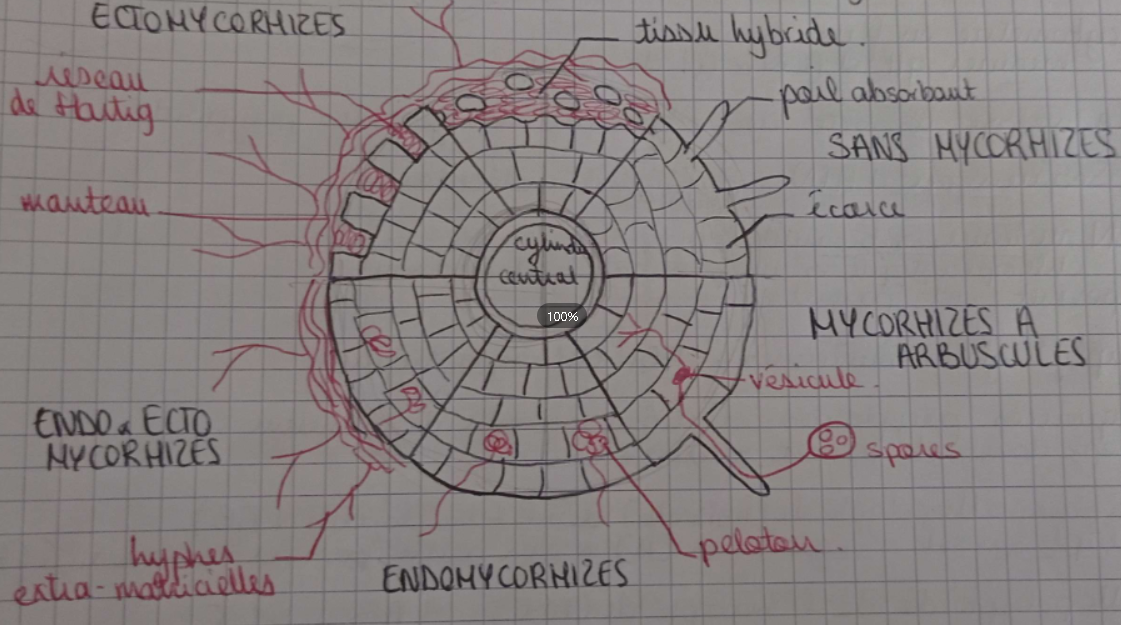 ECTOMYCORHIZES
tissu hybride.
réseau
de Hartig
poil absorbant
SANS MYCORHIZES
manteau
écorce
cylindre
central
100%
MYCORHIZES A
ARBUSCULES
vésicule.
ENDO & ECTO
MYCORHIZES
spores
hyphes
extra-matricielles
peloton.
ENDOMYCORHIZES